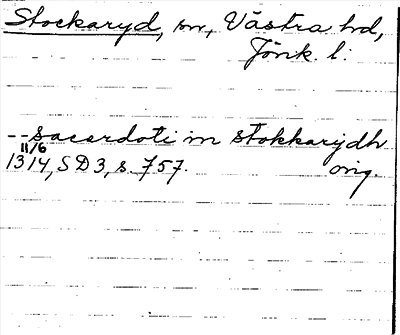 Stockaryd, sn, Västra hd,
Jönk. l.
--sacerdoti in stokkarydh
11/6
1314, SD3, s. 757. orig.